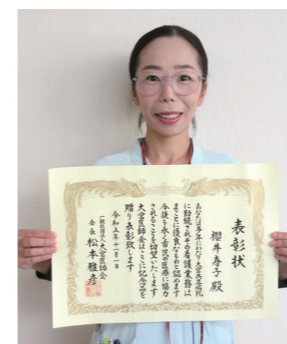 表彰状
櫻井寿子 殿
あなたは多年にわたり大宮医師会
に勤続されその看護業務は
まことに優良なものと認めます
今後も永く市民の医療に協力
されることを切望いたします
大宮医師会はここに記念品を
贈り表彰致します
令和五年十一月一日
一般社団法人大宮医師会
会長 松本雅彦